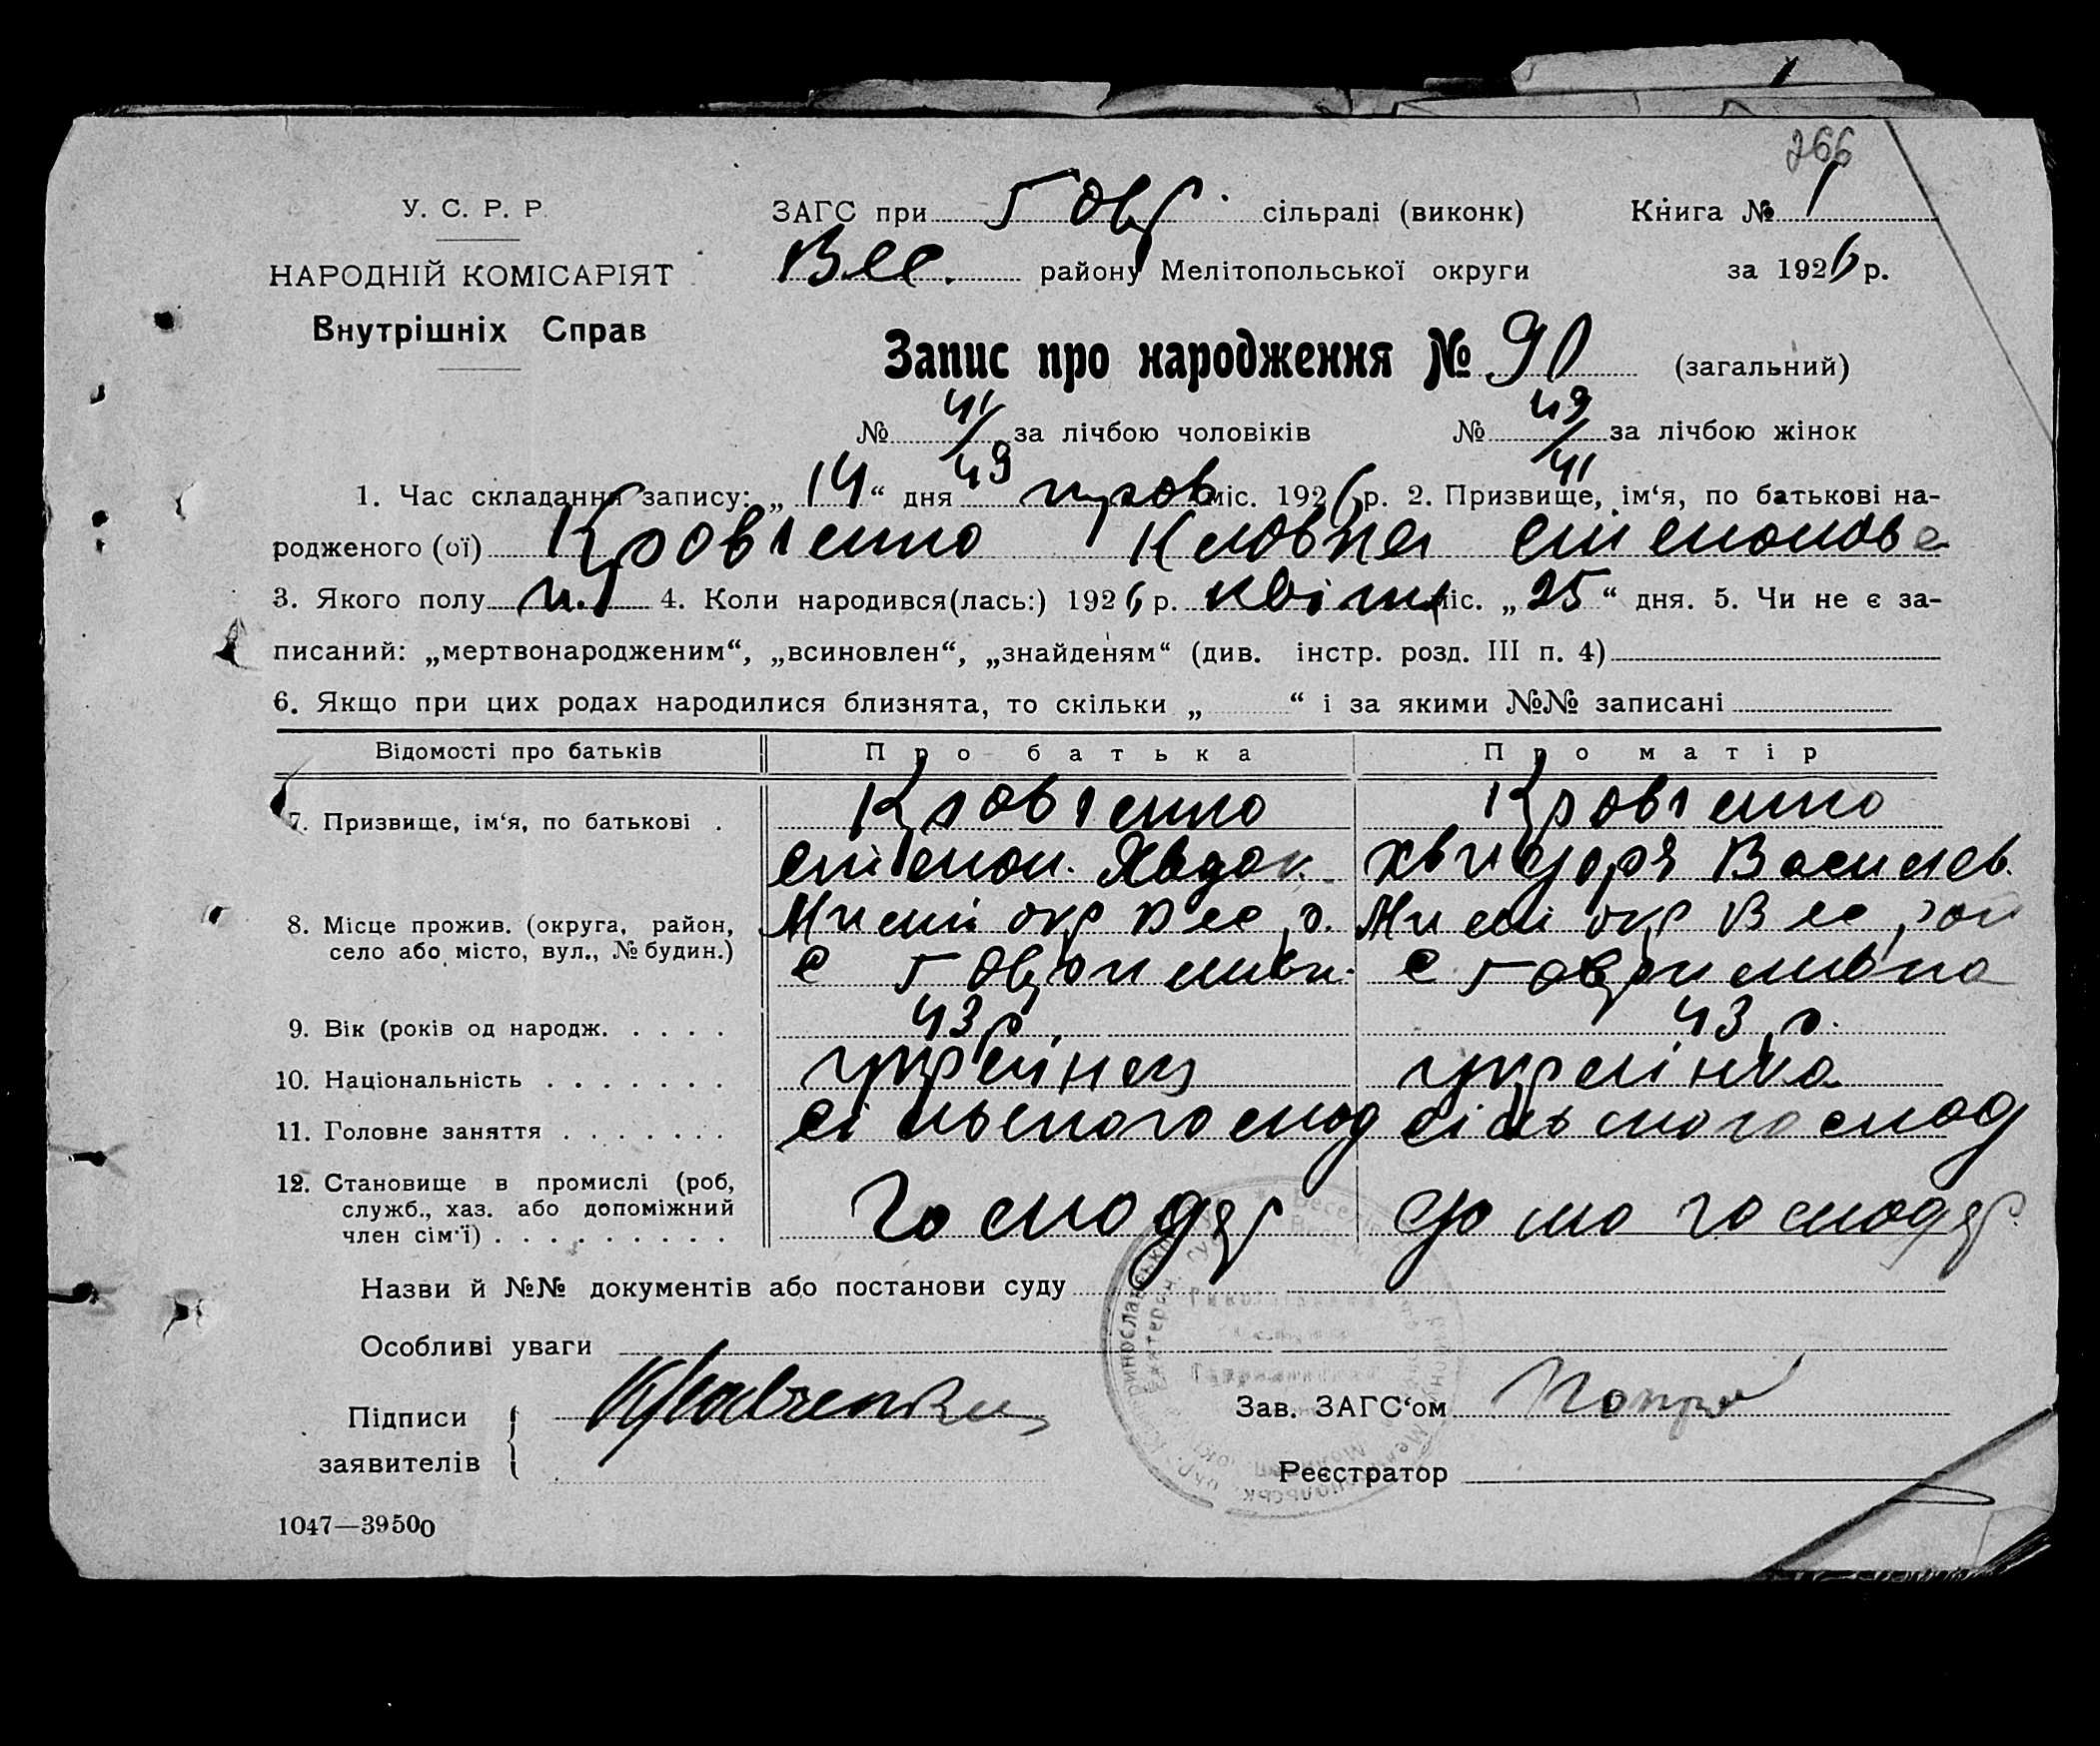 266
У. С. Р. Р.
НАРОДНІЙ КОМІСАРІЯТ
Внутрішніх Справ
ЗАГС при Гавр. сільраді (виконк) Книга № 1
Вес. району Мелітопольської округи за 1926 р.
Запис про народження № 90 (загальний)
№ 41/49 за лічбою чоловіків № 49/41 за лічбою жінок
1. Час складання запису: „14“ дня трав міс. 1926 р. 2. Призвище, ім‘я, по батькові на-
родженого (ої) Кравченко Клавдея Степанова
3. Якого полу 4. Коли народився(лась:) 1926 р. квітн міс. „25“ дня. 5. Чи не є за-
писаний: „мертвонародженим“, „всиновлен“, „знайденям“ (див. інстр. розд. III п. 4)
6. Якщо при цих родах народилися близнята, то скільки „ “ і за якими №№ записані
Відомості про батьків Про батька Про матір
7. Призвище, ім‘я, по батькові . Кравченко Кравченко
Степан. Хвидоря Василев.
8. Місце прожив. (округа, район, село або місто, вул., № будин.) Мелі окр Вес р. Мелі окр Вес рай
с Гаврилівк. с Гаврилівка
9. Вік (років од народж. . . . . 43 р. 43 р.
10. Національність . . . . . . . украінец украінка
11. Головне заняття . . . . . . . сільське господ сільське господ
12. Становище в промислі (роб, служб., хаз. або допоміжний член сім‘ї) . . . . . . . . . господар домогосподар.
Назви й №№ документів або постанови суду
Особливі уваги
Підписи заявителів { Кравченко
Зав. ЗАГС‘ом
Реєстратор
1047—39500